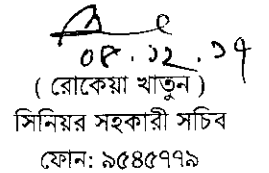 ০৮.১২.১৭
( রোকেয়া খাতুন )
সিনিয়র সহকারী সচিব
ফোন: ৯৫৪৫৭৭৯